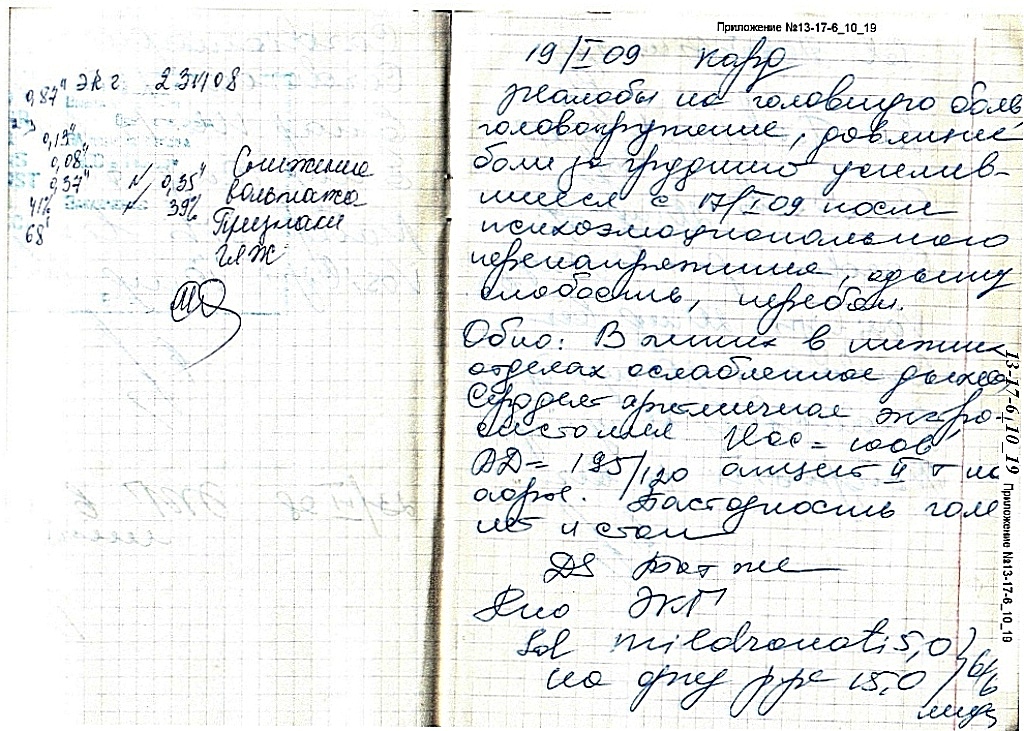 0,87" ЭКГ 23/I/08
0,13"
0,08"
0,37" N 0,35"
41% 39%
68'
Снижение
вольтажа
Признаки
ГЛЖ
Приложение №13-17-6_10_19
19/I 09 кард
Жалобы на головную боль,
головокружение, давление
боли за грудиной усилив-
шиеся с 17/I 09 после
психоэмоционального
перенапряжения, одышку
слабость, перебои.
Обно: В легких в нижних
отделах ослабленное дыхан
Сердцет аритмичное экстро-
систолия ЧСС = 100 в'
АД = 195/120 акцент II т на
аорте. Пастозность голе
ней и стоп
DS Тот же
Рио ЭКГ
Sol mildronati 5,0
на физ р-ре 15,0 в/в
13-17-6_10_19 Приложение №13-17-6_10_19